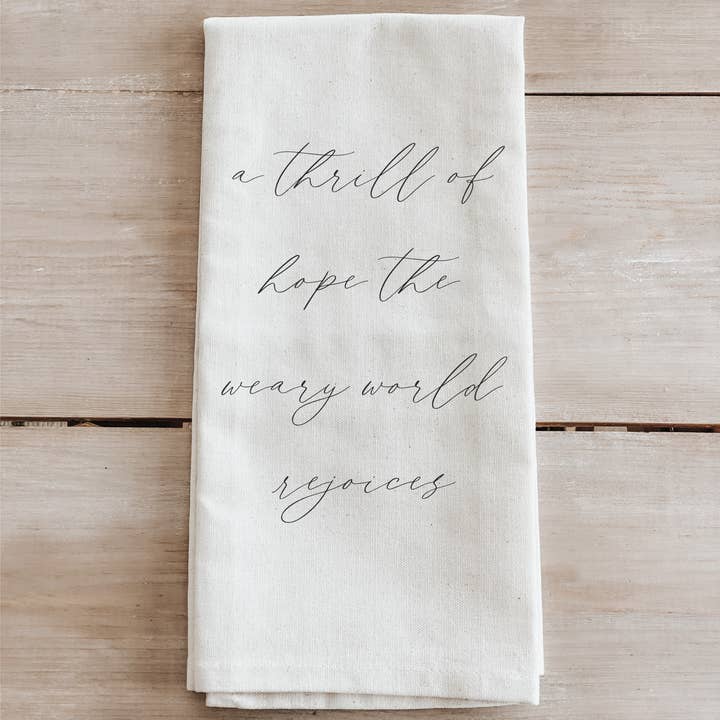 a thrill of
hope the
weary world
rejoices